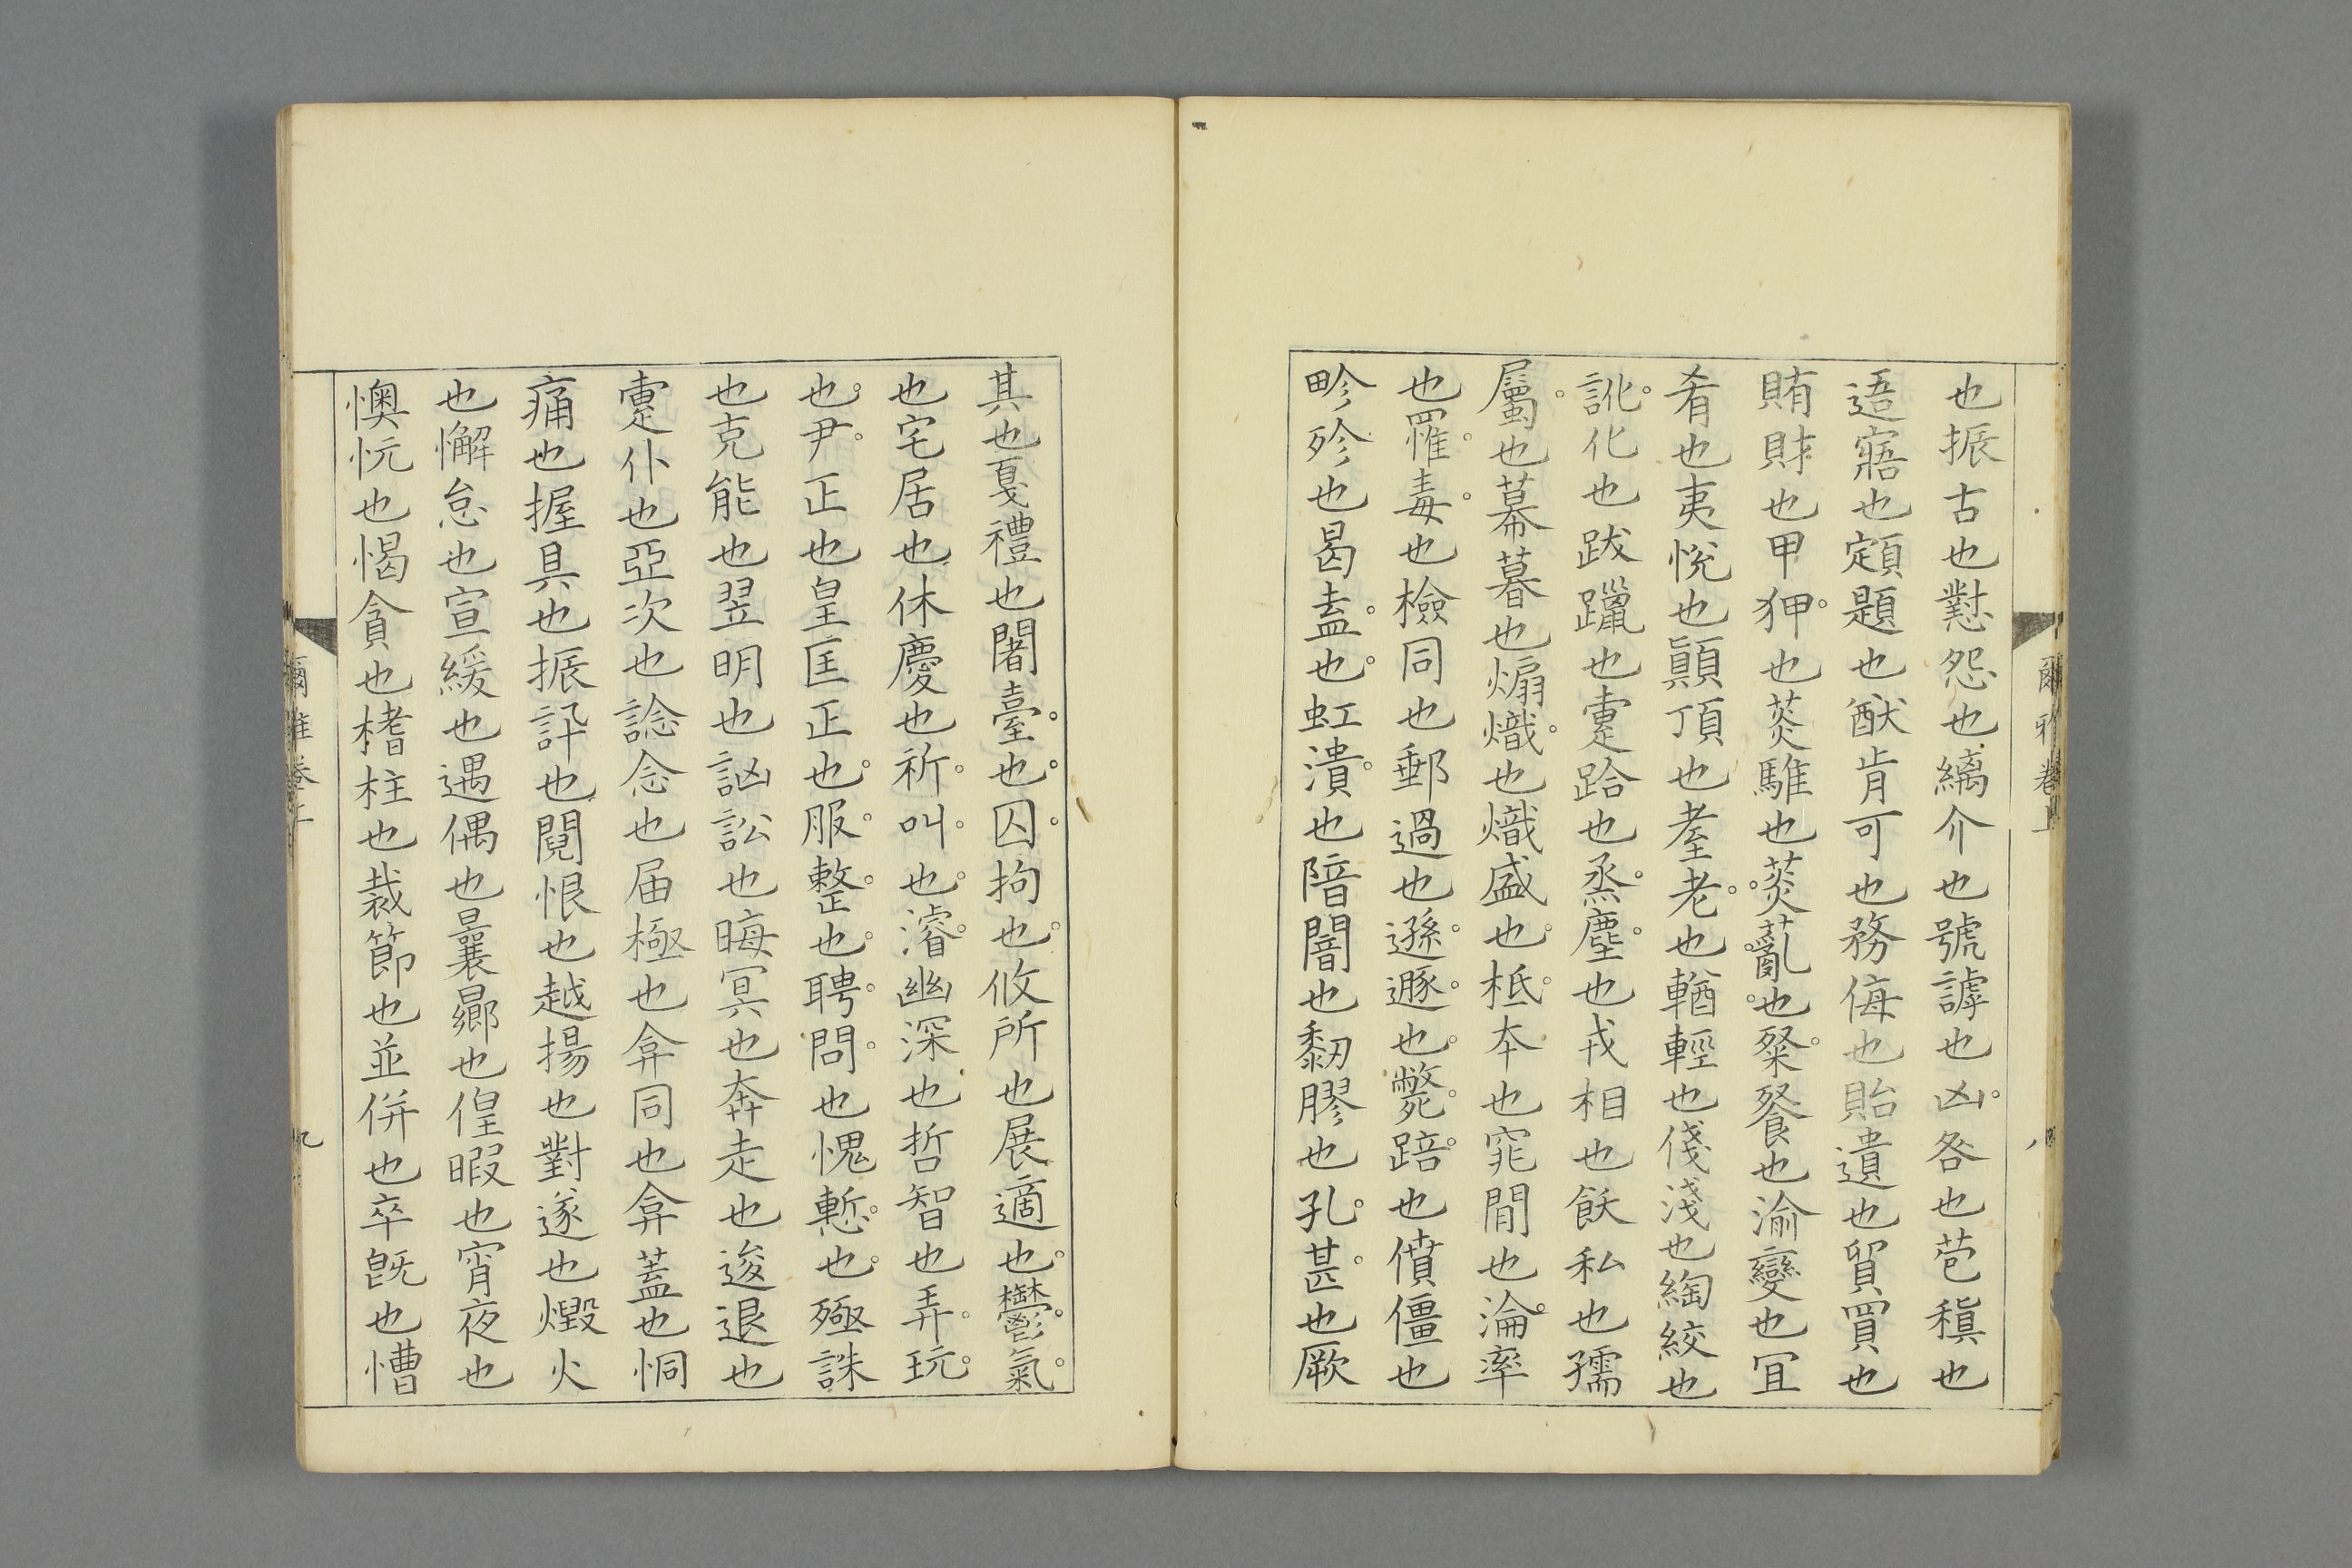 爾雅卷上
也振古也懟怨也縭介也號謼也凶咎也苞稹也
逜寤也顁題也猷肯可也務侮也貽遺也貿買也
賄財也甲狎也菼騅也菼薍也粲餐也渝變也宜
肴也夷悅也顛頂也耋老也輶輕也俴淺也綯絞也
訛化也跋躐也疐跲也烝塵也戎相也飫私也孺
屬也幕暮也煽熾也熾盛也柢本也窕閒也淪率
也罹毒也檢同也郵過也遜遯也斃踣也僨僵也
畛殄也曷盍也虹潰也陪闇也䵒膠也孔甚也厥
其也戛禮也闍臺也囚拘也攸所也展適也鬱氣
也宅居也休慶也祈叫也濬幽深也哲智也弄玩
也尹正也皇匡正也服整也聘問也愧慙也殛誅
也克能也翌明也訩訟也晦冥也奔走也逡退也
疐仆也亞次也諗念也届極也弇同也弇蓋也恫
痛也握具也振訊也䦧恨也越揚也對遂也燬火
也懈怠也宣緩也遇偶也曩曏也偟暇也宵夜也
懊忨也愒貪也榰柱也裁節也並併也卒旣也慒
爾雅卷上
九